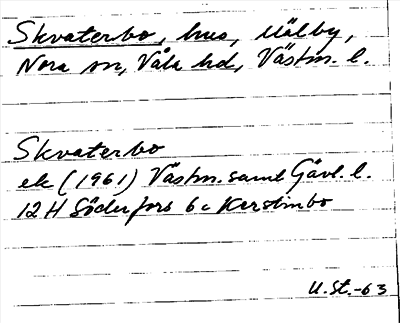 Skvaterbo, hus, Mälby,
Nora sn, Våla hd, Västm. l.
Skvaterbo
ek (1961) Västm. samt Gävl. l.
12 H Söderfors 6 c Kerstinbo
U. St. -63